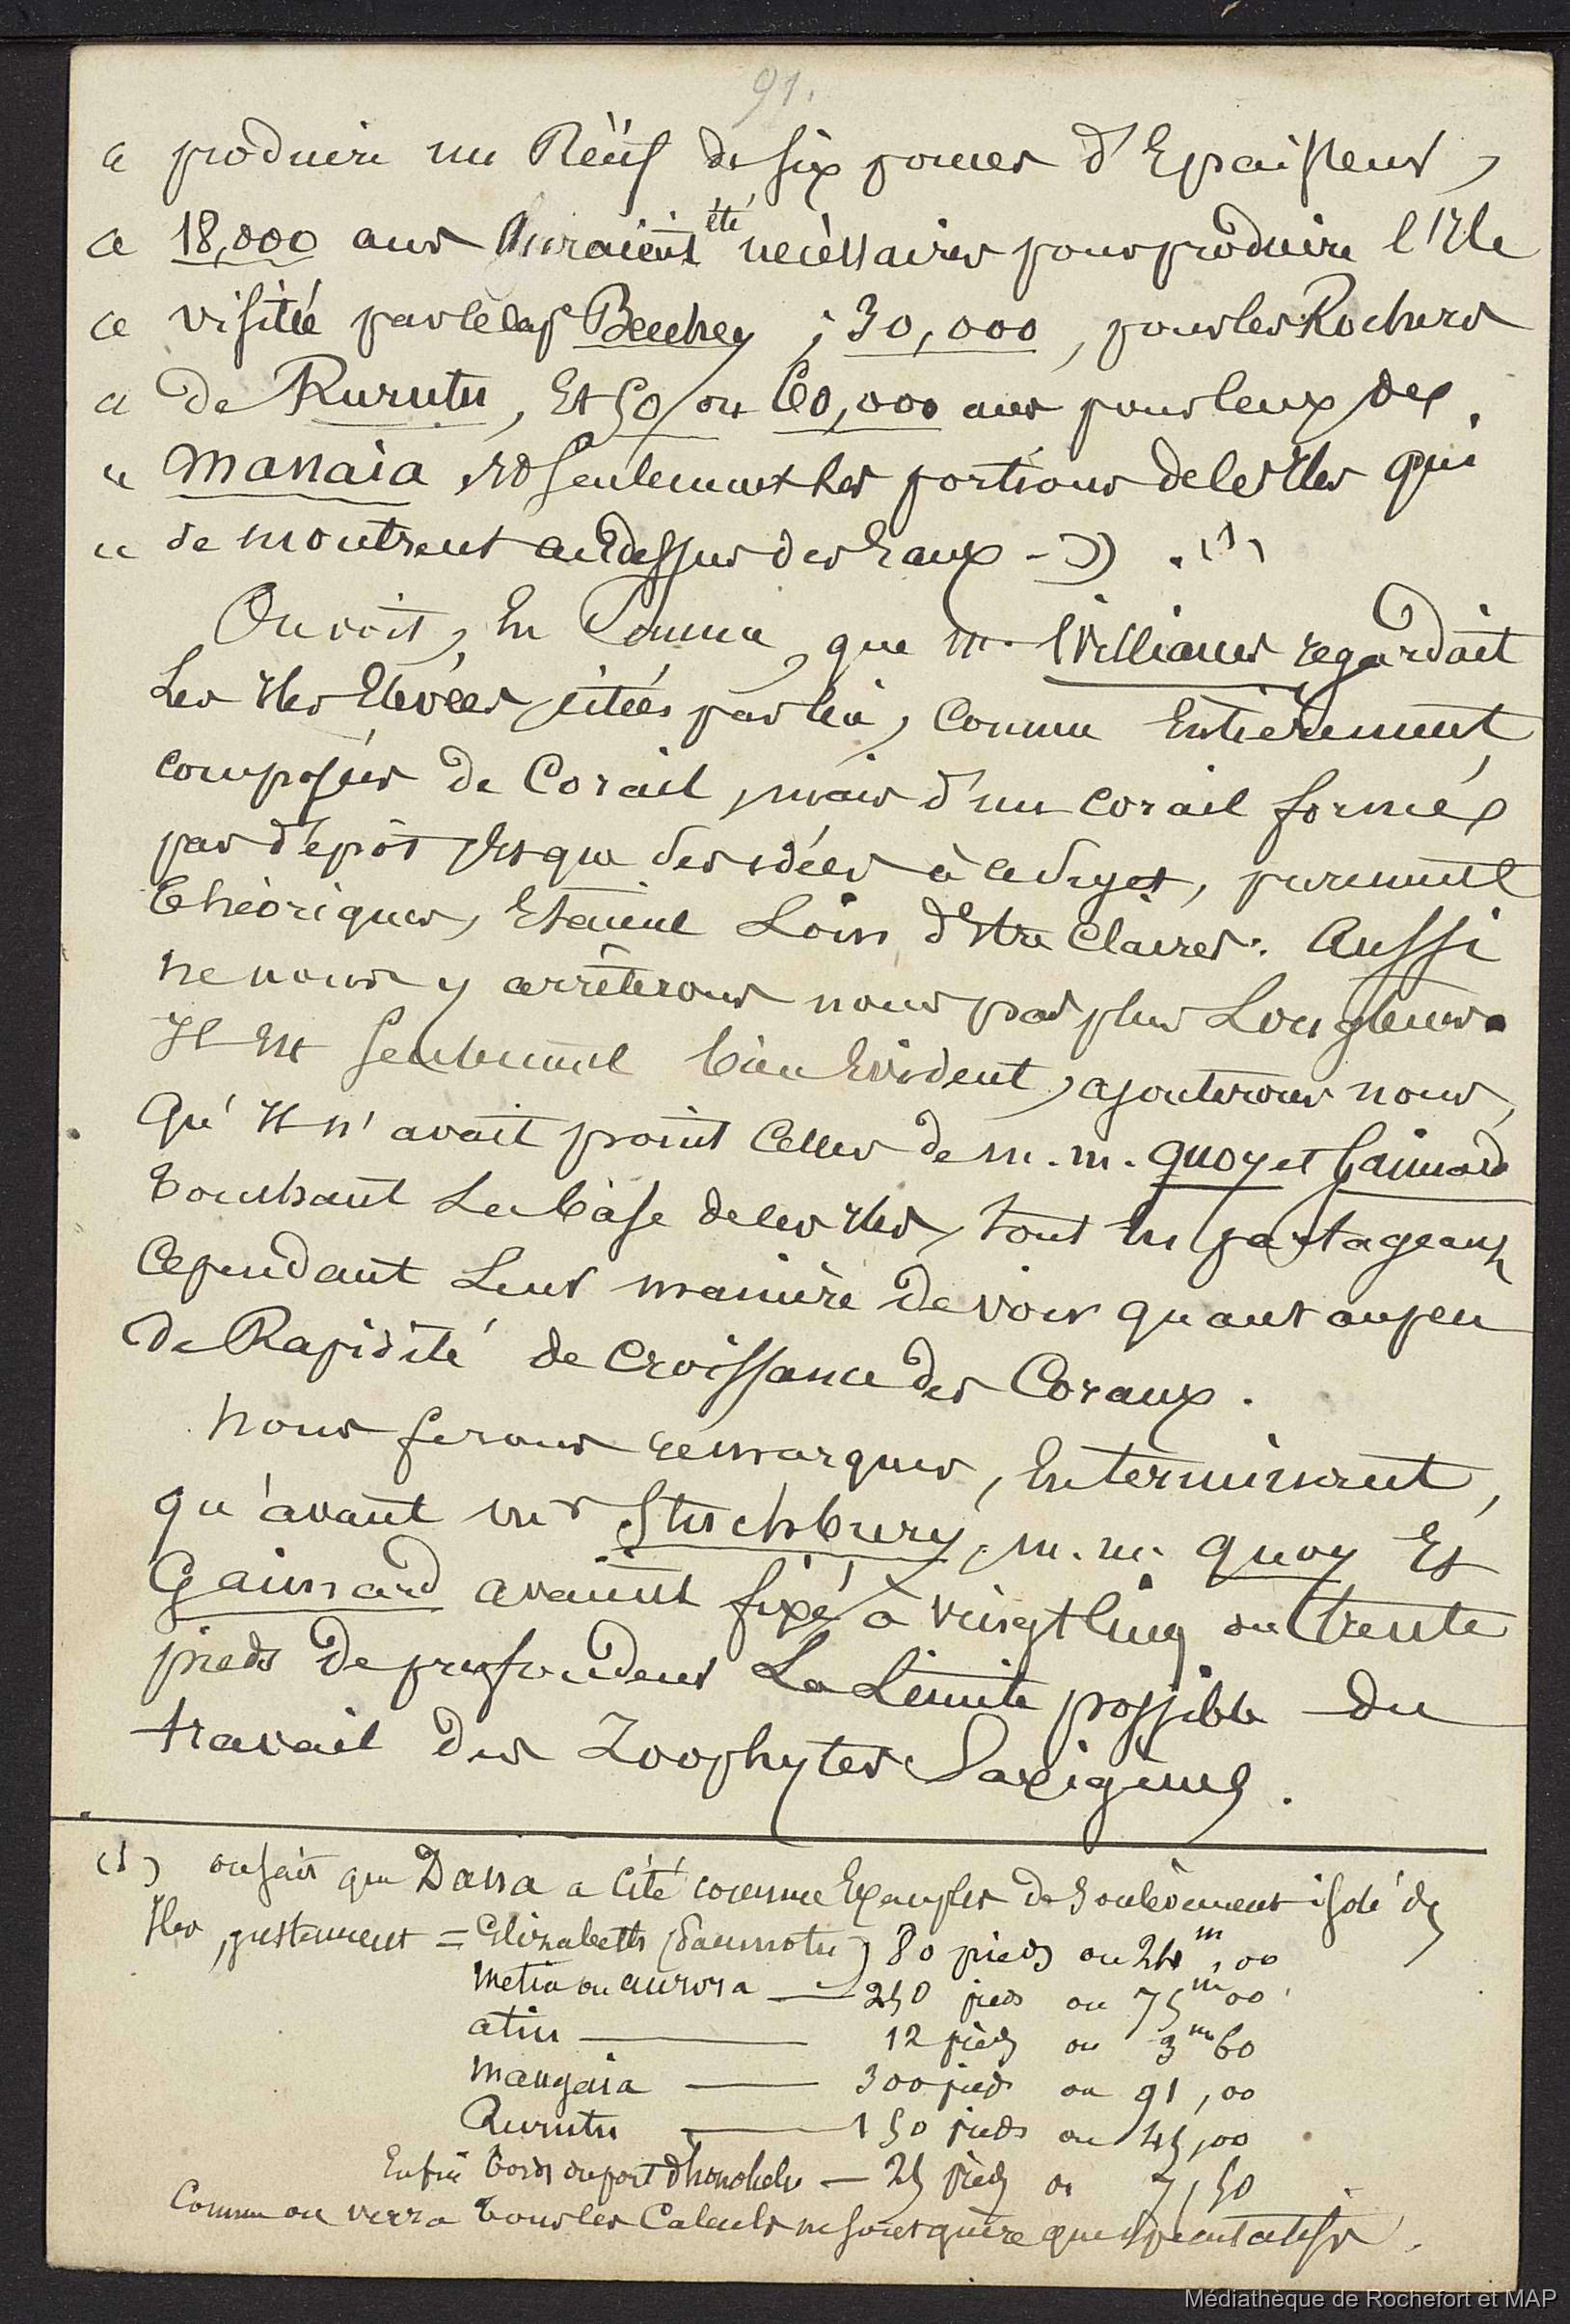 91.
« produire un Récif de six pouces d'Epaisseur,
« 18,000 ans auraient été nécessaires pour produire l'Ile
« visitée par le cap Beechey ; 30,000, pour les Rochers
« de Rurutu, Et 50 ou 60,000 ans pour ceux des
« manaia, et seulement les portions de ces Iles qui
« se montrent au dessus des Eaux - » . (1)
On voit, En Somme, que m. Williams regardait
Les Iles Elevées citées par lui, Comme Entièrement
composées de Corail, mais d'un corail formé
par dépôt Et que ses idées à ce sujet, purement
théoriques, Etaient Loin d'Etre Claires. Aussi
ne nous y arrêterons nous pas plus Longtems.
Il Est seulement bien Evident, ajouterons nous,
Qu'Il n'avait point Celles de m.m. Quoy et Gaimard
touchant La bâse de ces Iles, tout En partageant
Cependant Leur manière de voir quant au peu
de Rapidité de Croissance des Coraux.
Nous ferons remarquer, En terminant,
qu'avant mr Stutchbury, m.m. Quoy Et
Gaimard avaient fixé à vingt cinq ou trente
pieds de profondeur La Limite possible du
travail des Zoophytes Saxigènes.
(1) on sait que Dana a cité comme Exemples de Soulèvement isolé des
Iles, justement = Elizabeth (Paumotu) 80 pieds ou 24m,00
Metia ou aurora — 250 pieds ou 75m00
atiu — 12 pieds ou 3m60
mangaia — 300 pieds ou 91,00
Rurutu — 150 pieds ou 45,00
Enfin bords du port d'honolulu — 25 pieds ou 7,50
Comme on verra tous les Calculs ne sont guère que spéculatifs.
Médiathèque de Rochefort et MAP